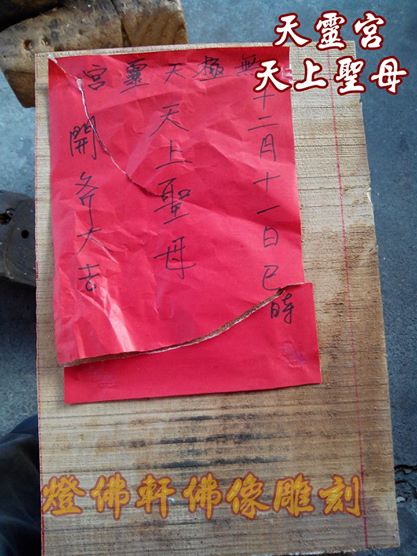 天靈宮
天上聖母
無極天靈宮
十二月十一日巳時
天上聖母
開斧大吉
燈佛軒佛像雕刻